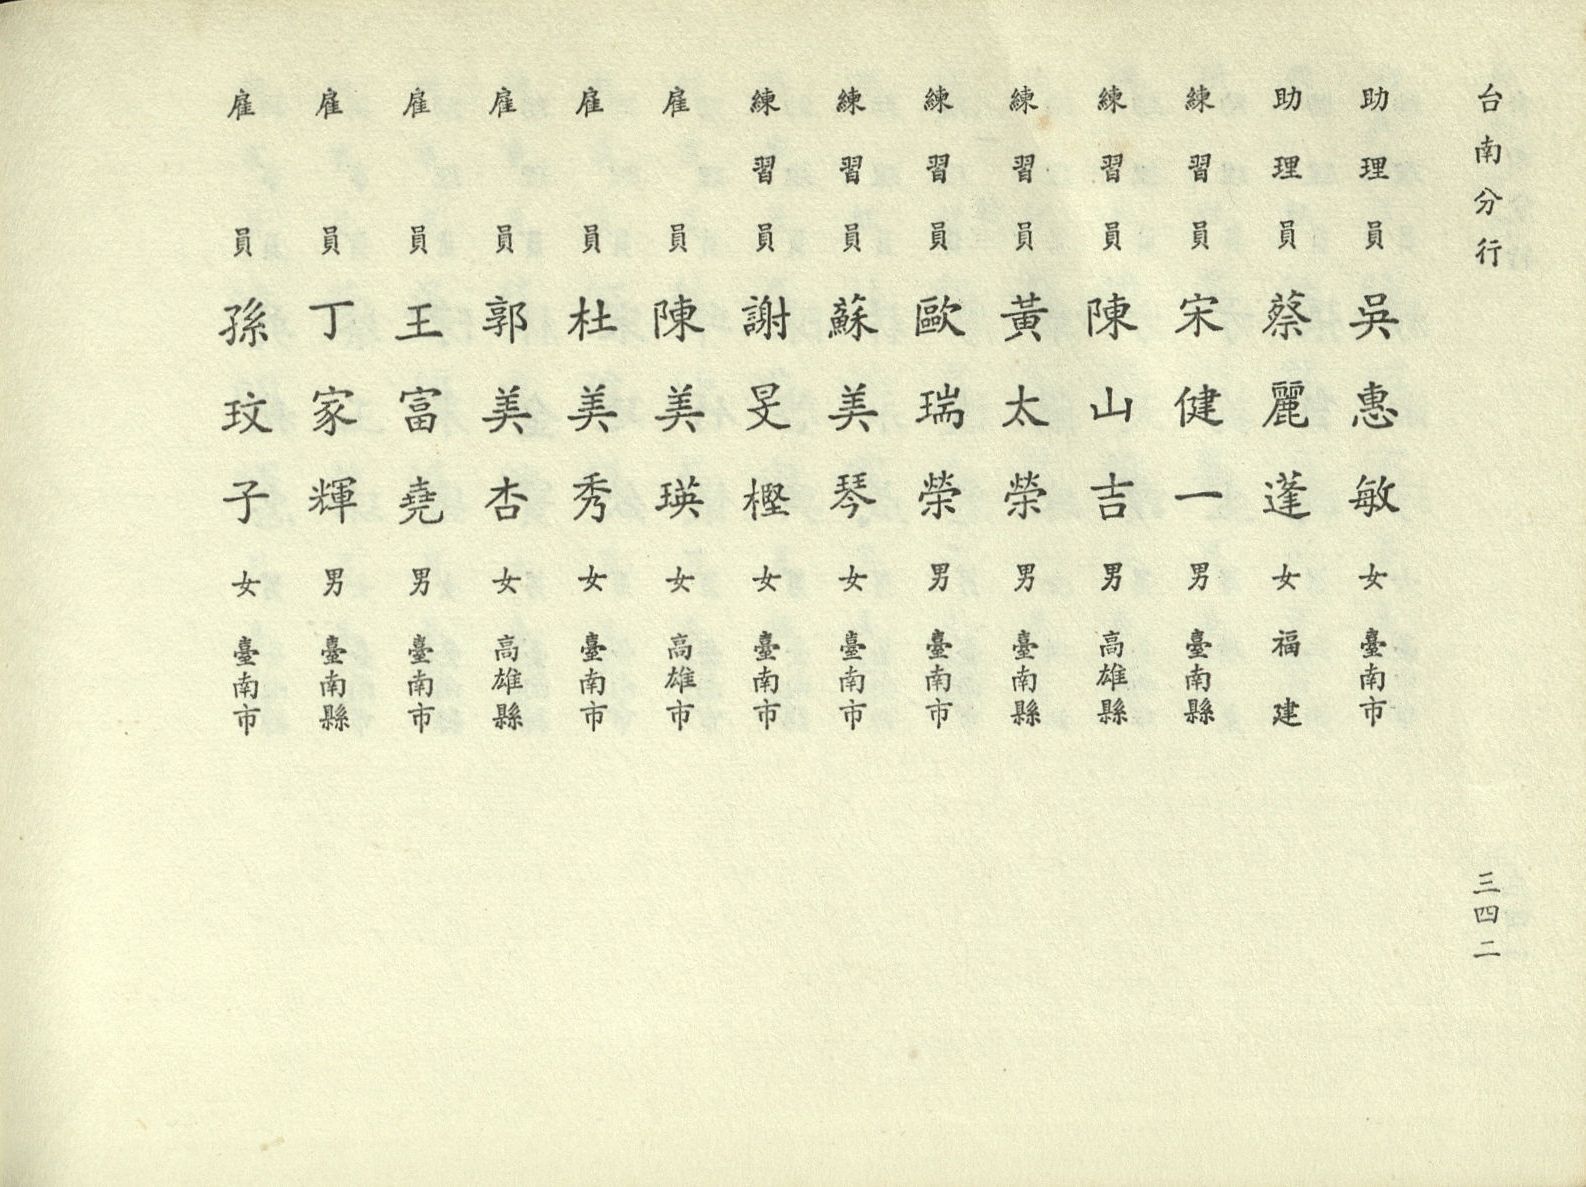 台南分行
三四二
助理員 吳惠敏 女 臺南市
助理員 蔡麗蓬 女 福建
練習員 宋健一 男 臺南縣
練習員 陳山吉 男 高雄縣
練習員 黃太榮 男 臺南縣
練習員 歐瑞榮 男 臺南市
練習員 蘇美琴 女 臺南市
練習員 謝旻樫 女 臺南市
雇員 陳美瑛 女 高雄市
雇員 杜美秀 女 臺南市
雇員 郭美杏 女 高雄縣
雇員 王富堯 男 臺南市
雇員 丁家輝 男 臺南縣
雇員 孫玟子 女 臺南市